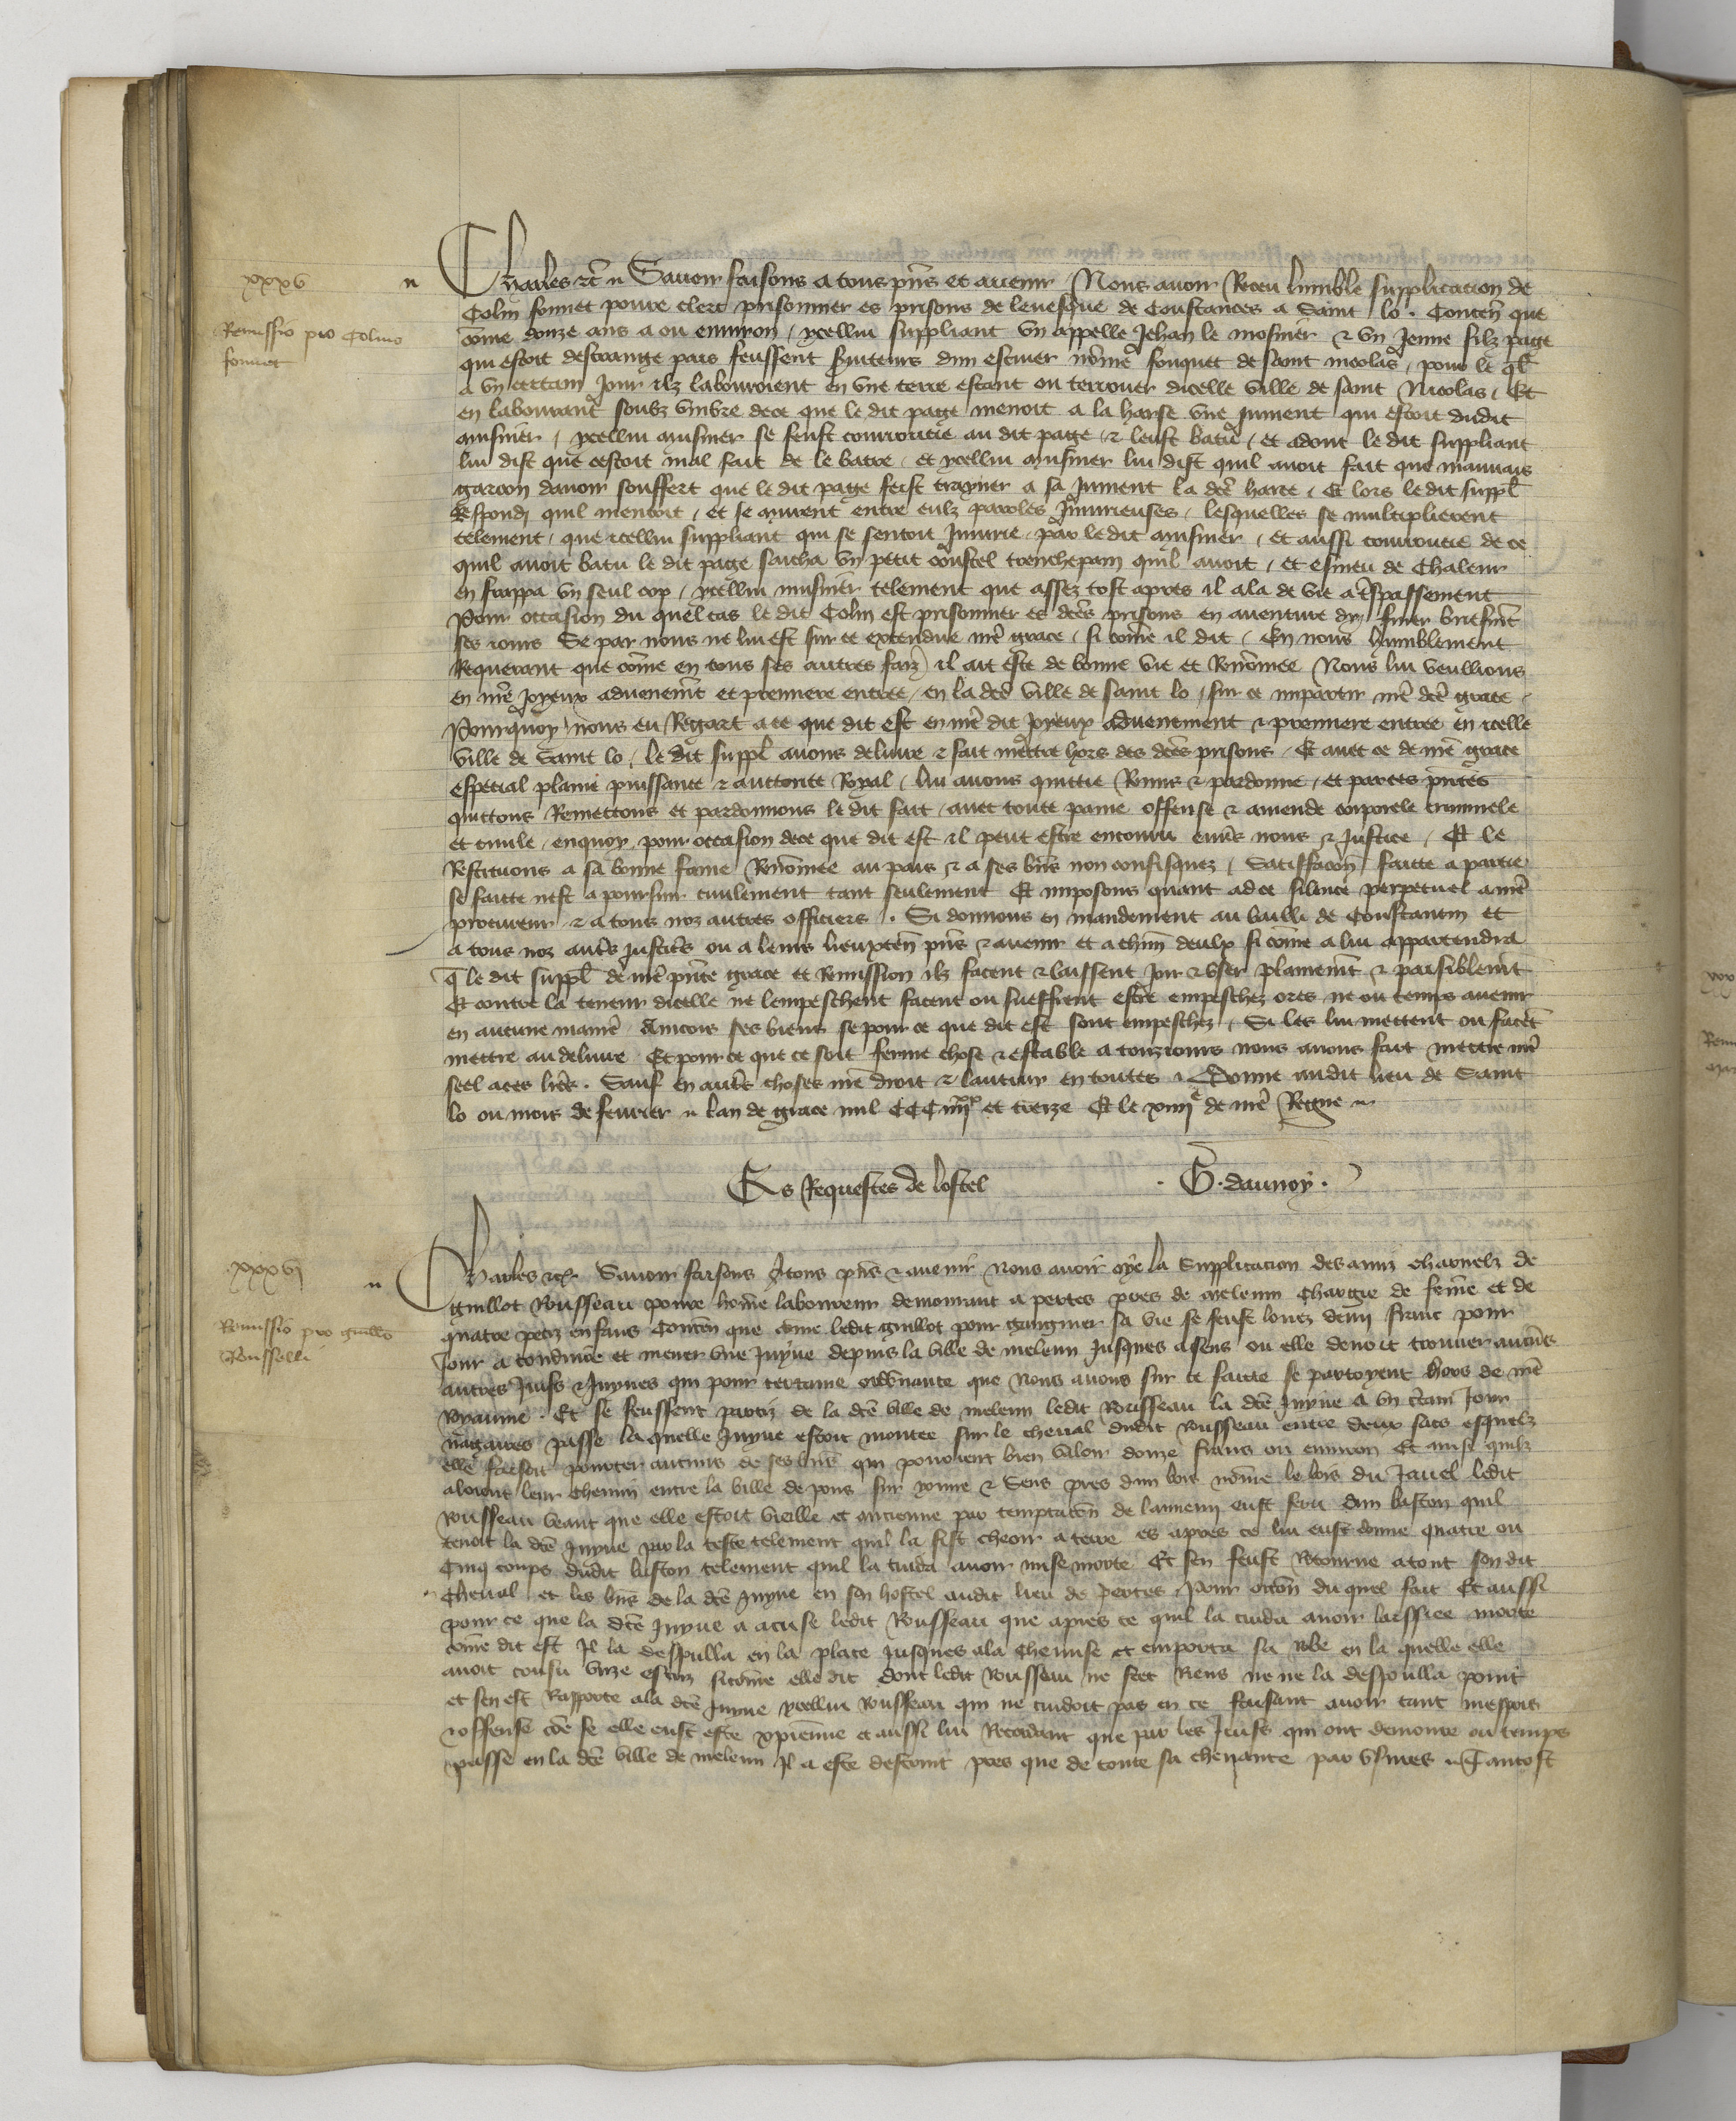 xxxv
Remissio pro Colino
fouuet
Charles etc. Sauoir faisons a tous pñs et auenir Nous auoir Receu lumble supplicacion de
Colin fouuet poure clerc prisonnier es prisons de leuesque de Coustances a Saint lo . Conteñ que
cõme douze ans a ou enuiron / ycellui suppliant vn appelle Jehan le mosnier & vn Jeune filz page
qui estoit destrange pais feussent seruiteurs dun escuier nõme fouquet de saint nicolas / pour le ql̃
a vn certain Jour ilz labouroient en vne terre estant ou terrouer dicelle ville de saint Nicolas / Et
en labourant soubz vmbre de ce que le dit page menoit a la harse vne Jument qui estoit dudit
musnier / ycellui musnier se feust courroucie au dit page & leust batu / et adont le dit suppliant
lui dist que cestoit mal fait de le batre / et ycellui musnier lui dist quil auoit fait que mauuais
garcon dauoir souffert que le dit page feist trayner a sa Jument la dcẽ harce / Et lors le dit suppl̃
Respondi quil mentoit / et se murent entre eulz paroles Jniurieuses / lesquelles se multiplierent
telement / que icellui suppliant qui se sentoit Jniurie par le dit musnier / et aussi courroucie de ce
quil auoit batu le dit page sacha vn petit coustel trenchepain quil auoit / et esmeu de Chaleur
en frappa vn seul cop / ycellui musnier telement que assez tost apres il ala de vie a trespassement
Pour occasion du quel cas le dit Colin est prisonnier es dcẽs prisons en auenture dy finer briefmt
ses iours Se par nous ne lui est sur ce extendue nrẽ grace / si cõme il dit / En nous humblement
Requerant que cõme en tous ses autres faiz il ait este de bonne vie et Renõmee Nous lui veullions
en nrẽ Joyeux aduenemt et premiere entree / en la dcẽ ville de saint lo / sur ce impartir nrẽ dcẽ grace /
Pourquoy nous eu Regart a ce que dit est en nrẽ dit Joyeux aduenement & premiere entree en icelle
ville de Saint lo / le dit suppl̃ auons deliure & fait mettre hors des dcẽs prisons / Et auec ce de nrẽ grace
especial plaine puissance & auctorite Royal / lui auons quictie Remis & pardonne / et par ces pñtes
quittons Remettons et pardonnons le dit fait / auec toute paine offense & amende corporele criminele
et ciuile / en quoy pour occasion de ce que dit est il peut estre encouru enuers nous & Justice / Et le
Restituons a sa bonne fame Renõmee au pais & a ses biñs non confisquez / Satiffacoñ faicte a partie
se faicte nest a poursuir ciuilement tant seulement Et imposons quant ad ce silence perpetuel a nrẽ
procureur & a tous noz autres officiers . Si donnons en mandement au bailli de Coustantin et
a tous noz autrẽs Justicrs ou a leurs lieuxteñ pñs & auenir et a chũn deulx si cõme a lui appartendra
q̃ le dit suppl̃ de nrẽ pñte grace et Remission ilz facent & laissent Joir & vser plainemt & paisiblemt
Et contre la teneur dicelle ne lempeschent facent ou sueffrent estre empeschez ores ne ou temps auenir
en aucune maniẽ Aincois ses biens se pour ce que dit est sont empeschez / Si les lui mettent ou facẽt
mettre au deliure Et pour ce que ce soit ferme chose & estable a tousiours nous auons fait mettre nrẽ
seel a ces lrẽs . Sauf en autrẽs choses nrẽ droit & lautruy en toutes . Donne audit lieu de Saint
lo ou mois de feurier lan de grace mil CCC iiijxx et treize Et le xiiije de nrẽ Regne
Es Requestes de lostel G. daunoy .
xxxvj
Remissio pro guillo
Rousselli
Charles etc. Sauoir faisons a tous pñs & auenir Nous auoir oye la Supplicacion des amis charnelz de
guillot Rousseau poure hõme laboureur demourant a pertes pres de meleun Chargie de femẽ et de
quatre petiz enfans Conteñ que cõme ledit guillot pour gaingnier sa vie se feust louez demj franc pour
Jour a conduire et mener vne Juyue depuis la ville de meleun Jusques a sens ou elle deuoit trouuer aucuñs
autres Juifs & Juyues qui pour certaine ordñance que Nous auons sur ce faicte se partoyent hors de nrẽ
Royaume . Et se feussent partiz de la dcẽ ville de meleun ledit Rousseau la dcẽ Juyue a vn certain Jour
nagaires passe la quelle Juyue estoit montee sur le cheual dudit Rousseau entre deux sacs esquelz
elle faisoit pourter aucuns de ses biñs qui pouoient bien valoir douze frans ou enuiron Et ainsi quilz
aloient leur chemin entre la ville de pons sur yonne & Sens pres dun bois nõme le bois du Jauel ledit
Rousseau veant que elle estoit vieille et ancienne par temptacõn de lannemj eust feru dun baston quil
tenoit la dcẽ Juyue par la teste telement quil la fist cheoir a terre et apres ce lui eust donne quatre ou
Cinq coups dudit baston telement quil la cuida auoir mise morte Et sen feust Retourne a tout son dit
Cheual et les biñs de la dcẽ Juyue en son hostel audit lieu de pertes . Pour occõn du quel fait Et aussi
pour ce que la dcẽ Juyue a accuse ledit Rousseau que apres ce quil la cuida auoir laissiee morte
cõme dit est Il la despulla en la place Jusques a la chemise et emporta sa robe en la quelle elle
auoit cousu vnze escuz sicõme elle dit dont ledit Rousseau ne scet Riens ne ne la despoulla point
et sen est Rapporte a la dcẽ Juyue ycellui Rousseau qui ne cuidoit pas en ce faisant auoir tant mespris
& offense cõe se elle eust este xpienne et aussi lui Recordant que par les Juifs qui ont demoure ou temps
passe en la dcẽ ville de meleun Il a este destruit pres que de toute sa cheuance par vsures Tantost